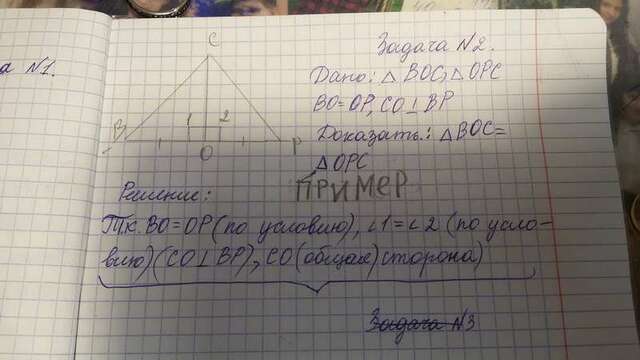 а №1.
Задача №2.
C
Дано: △ BOC, △ OPC
BO=OP, CO⊥BP
B
1
2
P
O
Доказать: △BOC=
△OPC
ПРИМЕР
Решение:
Т.к. BO=OP (по условию), ∠1=∠2 (по усло-
вию) (CO⊥BP), CO (общая) сторона)
Задача №3